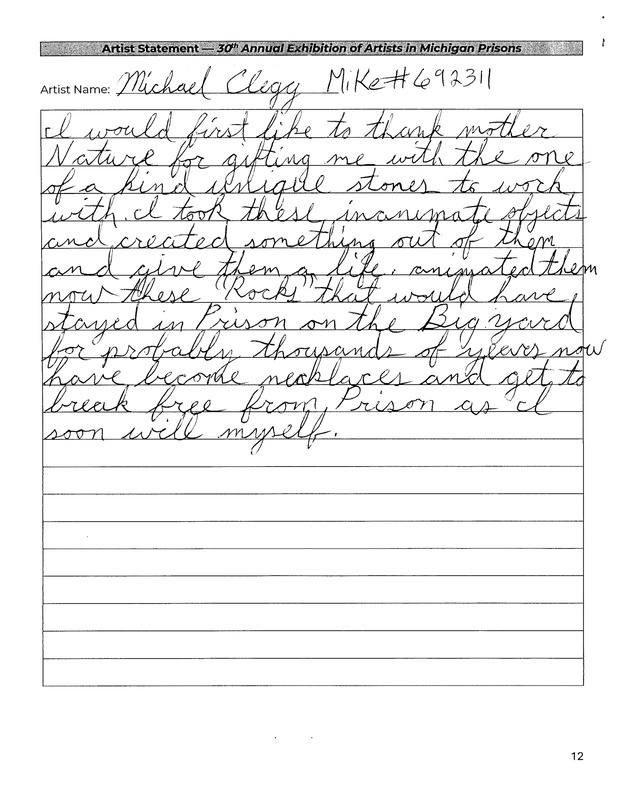 Artist Statement — 30th Annual Exhibition of Artists in Michigan Prisons
Artist Name: Michael Clegg MiKe#692311
I would first like to thank mother
Nature for gifting me with the one
of a kind unique stones to work
with. I took these inanimate objects
and created something out of them
and give them a life. animated them
now these "Rocks" that would have
stayed in Prison on the Big yard
for probably thousands of years now
have become necklaces and get to
break free from Prison as I
soon will myself.
12